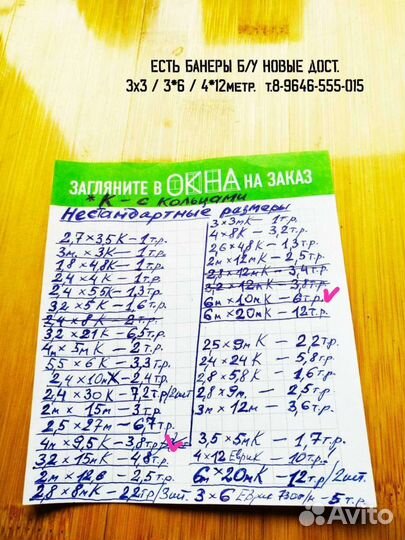 ЕСТЬ БАНЕРЫ Б/У НОВЫЕ ДОСТ.
3х3 / 3*6 / 4*12метр. т.8-9646-555-015
ЗАГЛЯНИТЕ В ОКНА НА ЗАКАЗ
*К - с кольцами
Нестандартные размеры
2,7 × 3,5К - 1т.р.
3м × 3К - 1т.р.
1,8 × 4,8К - 1т.р.
2,4 × 4К - 1т.р.
2,4 × 5,5К - 1,3т.р.
3,2 × 5К - 1,6т.р.
2,4 × 8К - 2т.р.
3,2 × 21К - 6,5т.р.
4м × 5мК - 2т.р.
5,5 × 6К - 3,3т.р.
2,4 × 10мК - 2,4т.р.
2,4 × 30К - 7,2т.р/2шт
2м × 15м - 3т.р.
2,5 × 27м - 6,7т.р.
4м × 9,5К - 3,8т.р.
3,2 × 15мК - 4,8т.р.
2м × 12,6 - 2,5т.р.
2,8 × 8мК - 2,2тр/3шт.
3 × 3мК - 1т.р.
4 × 8К - 3,2т.р.
2,6 × 4,8К - 1,3т.р.
2м × 12мК - 2,5т.р.
2,8 × 12мК - 3,4т.р.
3,2 × 12мК - 3,8т.р.
6м × 10мК - 6т.р.
6м × 20мК - 12т.р.
2,5 × 9мК - 2,2т.р.
24 × 24К - 5,8т.р.
2,8 × 5,8К - 1,6т.р.
2,8 × 9м. - 2,5т.р.
3м × 12м - 3,6т.р.
3,5 × 5мК - 1,7т.р.
4 × 12 ЕвриК - 10т.р.
6м × 20мК - 12т.р/2шт
3 × 6 - 5т.р.
Avito